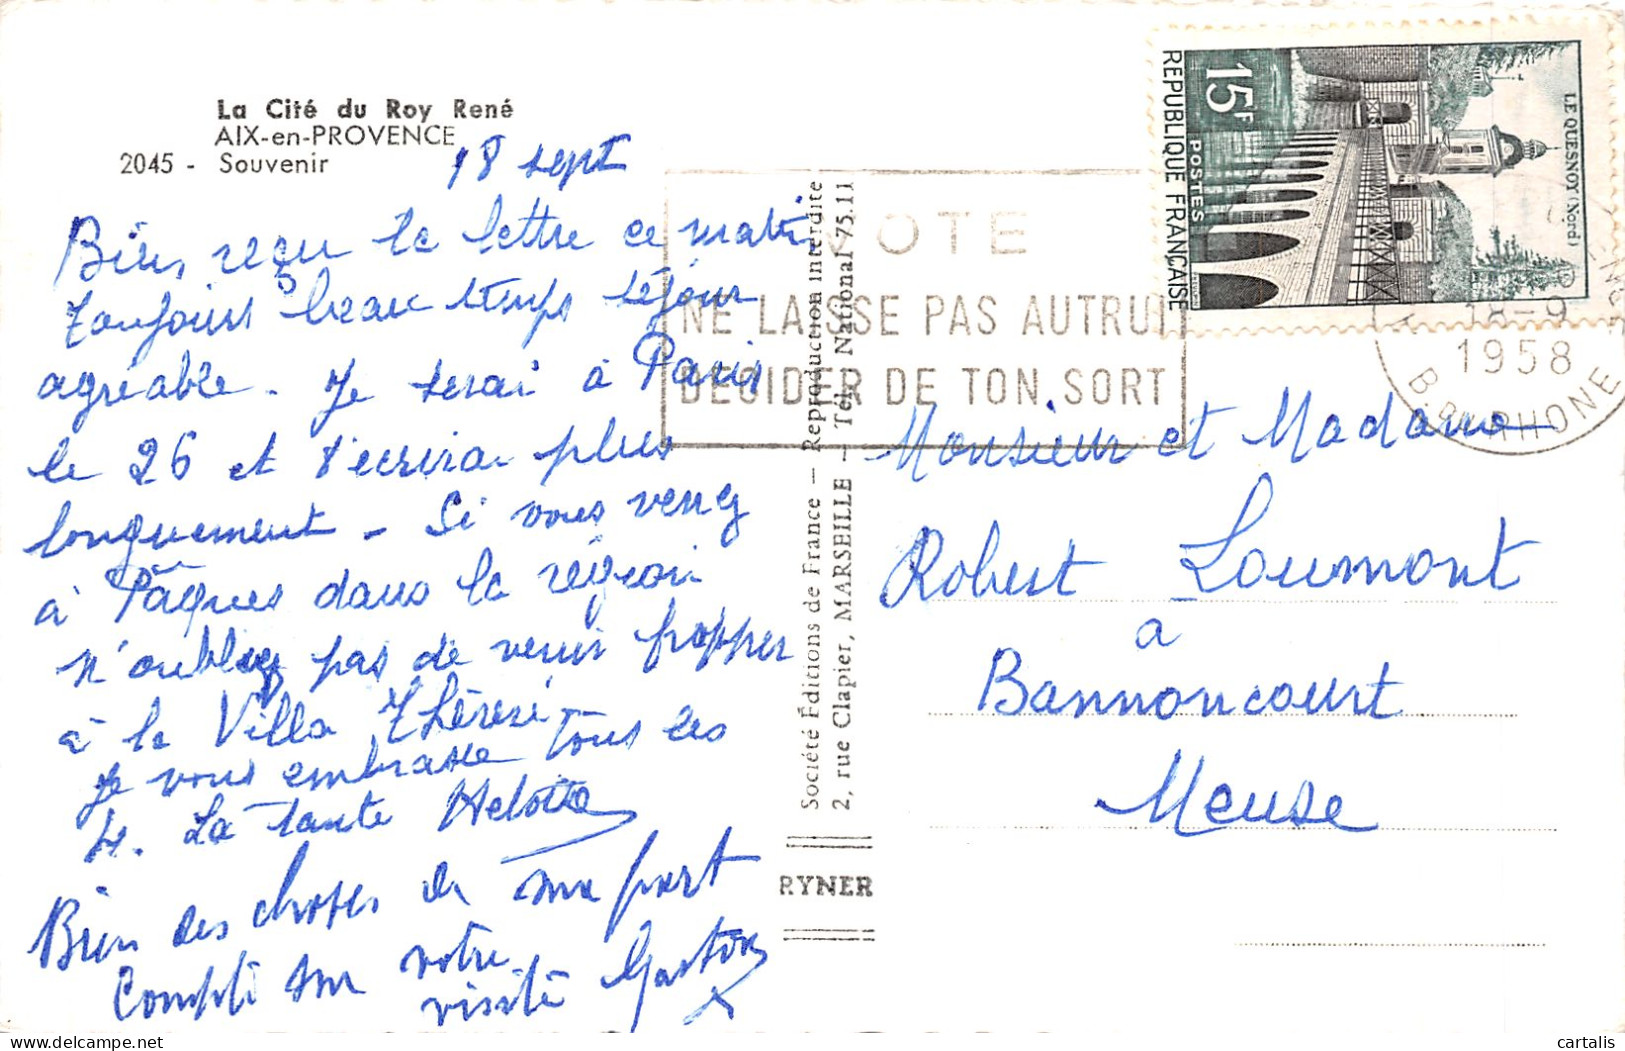 La Cité du Roy René
AIX-en-PROVENCE
2045 - Souvenir
18 sept
Bien reçu la lettre ce matin
Toujours beau temps séjour
agréable. Je serai à Paris
le 26 et t'écrirai plus
longuement - Si vous venez
à Pâques dans la région
n'oubliez pas de venir frapper
à la Villa Thérèse
Je vous embrasse tous les
4. La tante
Bien des choses de ma part
Compte sur votre
visite Gaston
Société Éditions de France - Reproduction interdite
2, rue Clapier, MARSEILLE - Tél. National 75.11
RYNER
VOTE
NE LAISSE PAS AUTRUI
DECIDER DE TON SORT
15F
POSTES
REPUBLIQUE FRANÇAISE
LE QUESNOY (Nord)
18-9
1958
B. DU RHONE
Monsieur et Madame
Robert Loumont
à
Bannoncourt
Meuse
cartalis